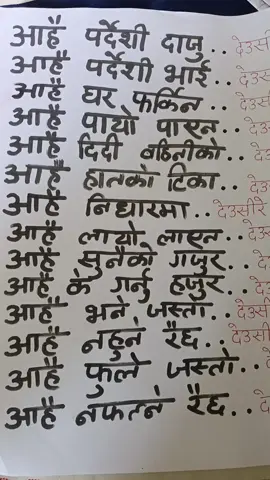 आहै पर्देशी दाजु.. देउसी
आहै पर्देशी भाई.. देउसी
आहै घर फर्किन.. देउसी
आहै पायो पाएन.. देउसी
आहै दिदी बहिनीको.. देउसी
आहै हातको टिका.. देउसी
आहै निधारमा.. देउसीरे
आहै लायो लाएन.. देउसी
आहै सुनको गजुर.. दे
आहै के गर्नु हजुर.. दे
आहै भने जस्तो.. देउसी
आहै नहुने रैछ.. देउसी
आहै फुले जस्तो.. दे
आहै नफल्ने रैछ.. दे